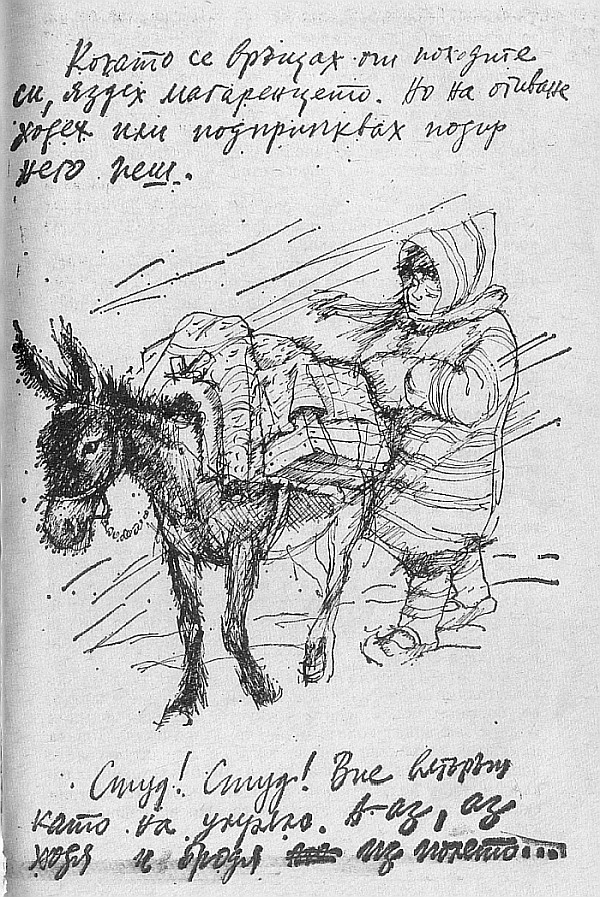 Когато се връщах от походите
си, яздех магаренцето. Но на отиване
ходех или подприпквах подир
него пеш.
Студ! Студ! Вие вятърът
като на умряло. А аз, аз
ходя и бродя из полето...